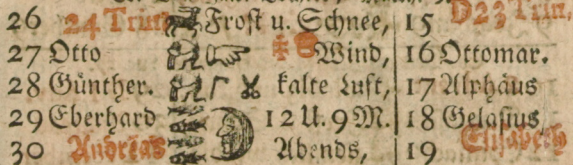 26 24 Trin Frost u. Schnee, 15 D23 Trin.
27 Otto Wind, 16 Ottomar.
28 Günther. kalte Luft, 17 Alphäus
29 Eberhard 12 U. 9 M. 18 Gelasius
30 Andreas Abends, 19 Elisabeth